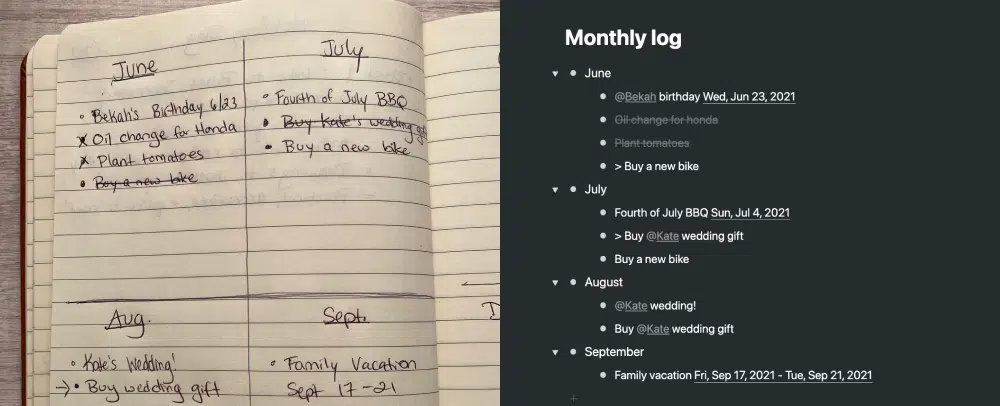 June
◦ Bekah's Birthday 6/23
x Oil change for Honda
x Plant tomatoes
• Buy a new bike
July
◦ Fourth of July BBQ
• Buy Kate's wedding gift
• Buy a new bike
Aug.
◦ Kate's Wedding!
→ • Buy wedding gift
Sept.
◦ Family Vacation
Sept 17-21
Monthly log
June
@Bekah birthday Wed, Jun 23, 2021
Oil change for honda
Plant tomatoes
> Buy a new bike
July
Fourth of July BBQ Sun, Jul 4, 2021
> Buy @Kate wedding gift
Buy a new bike
August
@Kate wedding!
Buy @Kate wedding gift
September
Family vacation Fri, Sep 17, 2021 - Tue, Sep 21, 2021